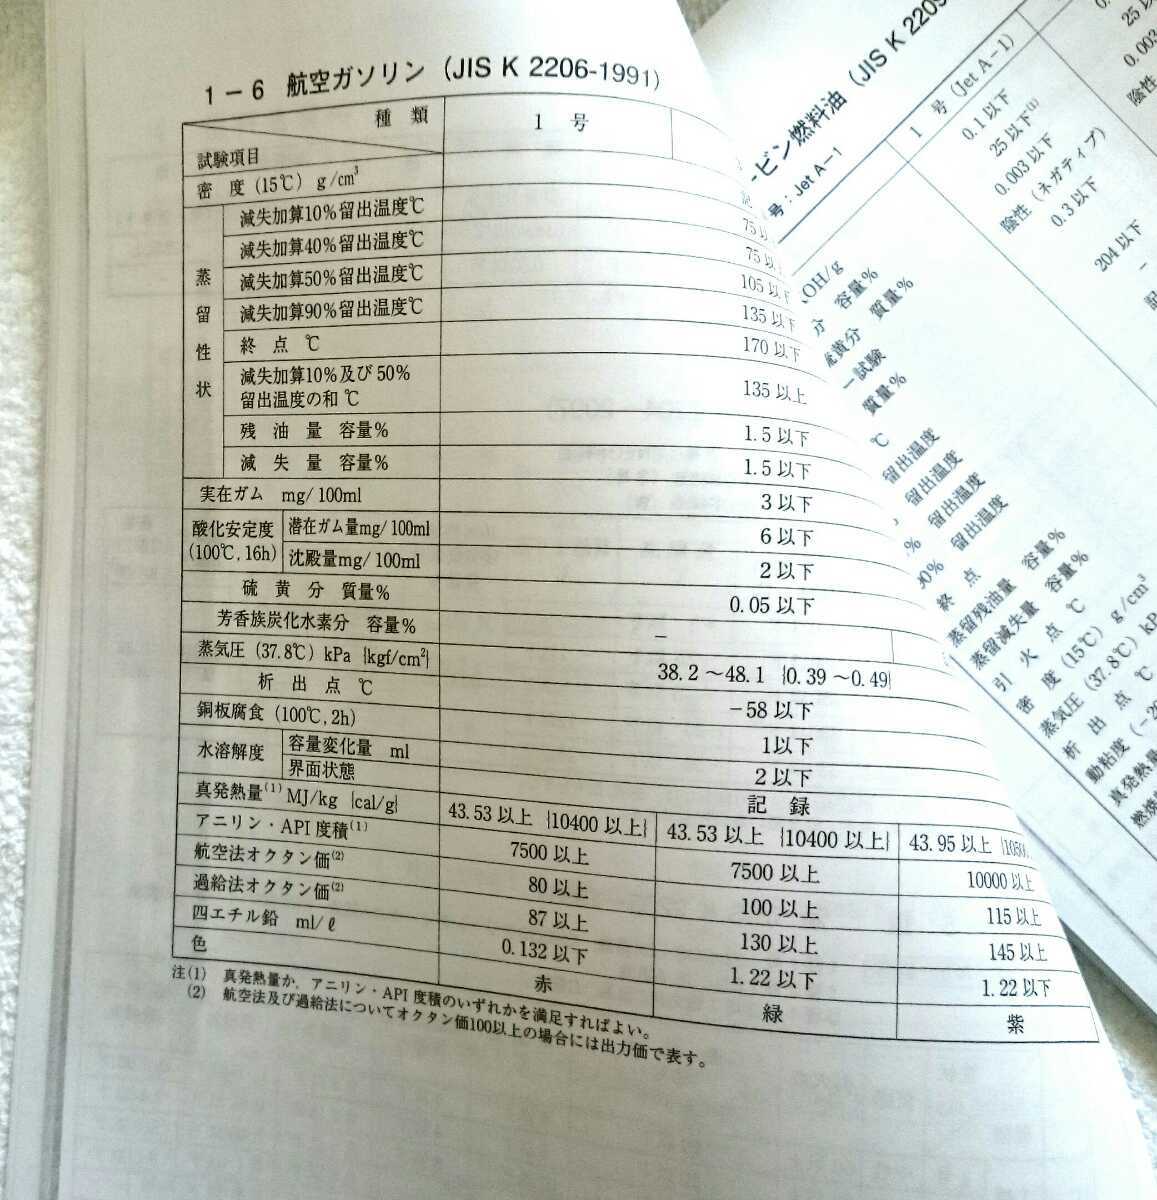 1－6 航空ガソリン (JIS K 2206-1991)
種 類 1 号
試験項目
密 度 (15℃) g/cm³ 記
蒸留性状
減失加算10%留出温度℃ 75以
減失加算40%留出温度℃ 75以
減失加算50%留出温度℃ 105以下
減失加算90%留出温度℃ 135以下
終 点 ℃ 170以下
減失加算10%及び50%
留出温度の和℃ 135以上
残 油 量 容量% 1.5以下
減 失 量 容量% 1.5以下
実在ガム mg/100ml 3以下
酸化安定度
(100℃, 16h)
潜在ガム量mg/100ml 6以下
沈殿量mg/100ml 2以下
硫 黄 分 質量% 0.05以下
芳香族炭化水素分 容量% －
蒸気圧 (37.8℃) kPa {kgf/cm²} 38.2～48.1 {0.39～0.49}
析 出 点 ℃ －58以下
銅板腐食 (100℃, 2h) 1以下
水溶解度
容量変化量 ml 2以下
界面状態 記 録
真発熱量⁽¹⁾ MJ/kg {cal/g} 43.53以上 {10400以上} 43.53以上 {10400以上} 43.95以上 {10500
アニリン・API度積⁽¹⁾ 7500以上 7500以上 10000以上
航空法オクタン価⁽²⁾ 80以上 100以上 115以上
過給法オクタン価⁽²⁾ 87以上 130以上 145以上
四エチル鉛 ml/ℓ 0.132以下 1.22以下 1.22以下
色 赤 緑 紫
注(1) 真発熱量か, アニリン・API度積のいずれかを満足すればよい。
(2) 航空法及び過給法についてオクタン価100以上の場合には出力価で表す。
ビン燃料油 (JIS K 2209
号：Jet A-1
1 号 (Jet A-1)
OH/g 0.1以下
分 容量% 25以下⁽¹⁾
黄分 質量% 0.003以下
試験 陰性 (ネガティブ)
質量% 0.3以下
℃
留出温度 204以下
留出温度 －
% 留出温度 記
90% 留出温度
終 点 ℃
蒸留残油量 容量%
蒸留減失量 容量%
引 火 点 ℃
密 度 (15℃) g/cm³
蒸気圧 (37.8℃) kP
析 出 点 ℃
動粘度 (－2
真発熱量
燃焼
0.
25以
0.003
陰性